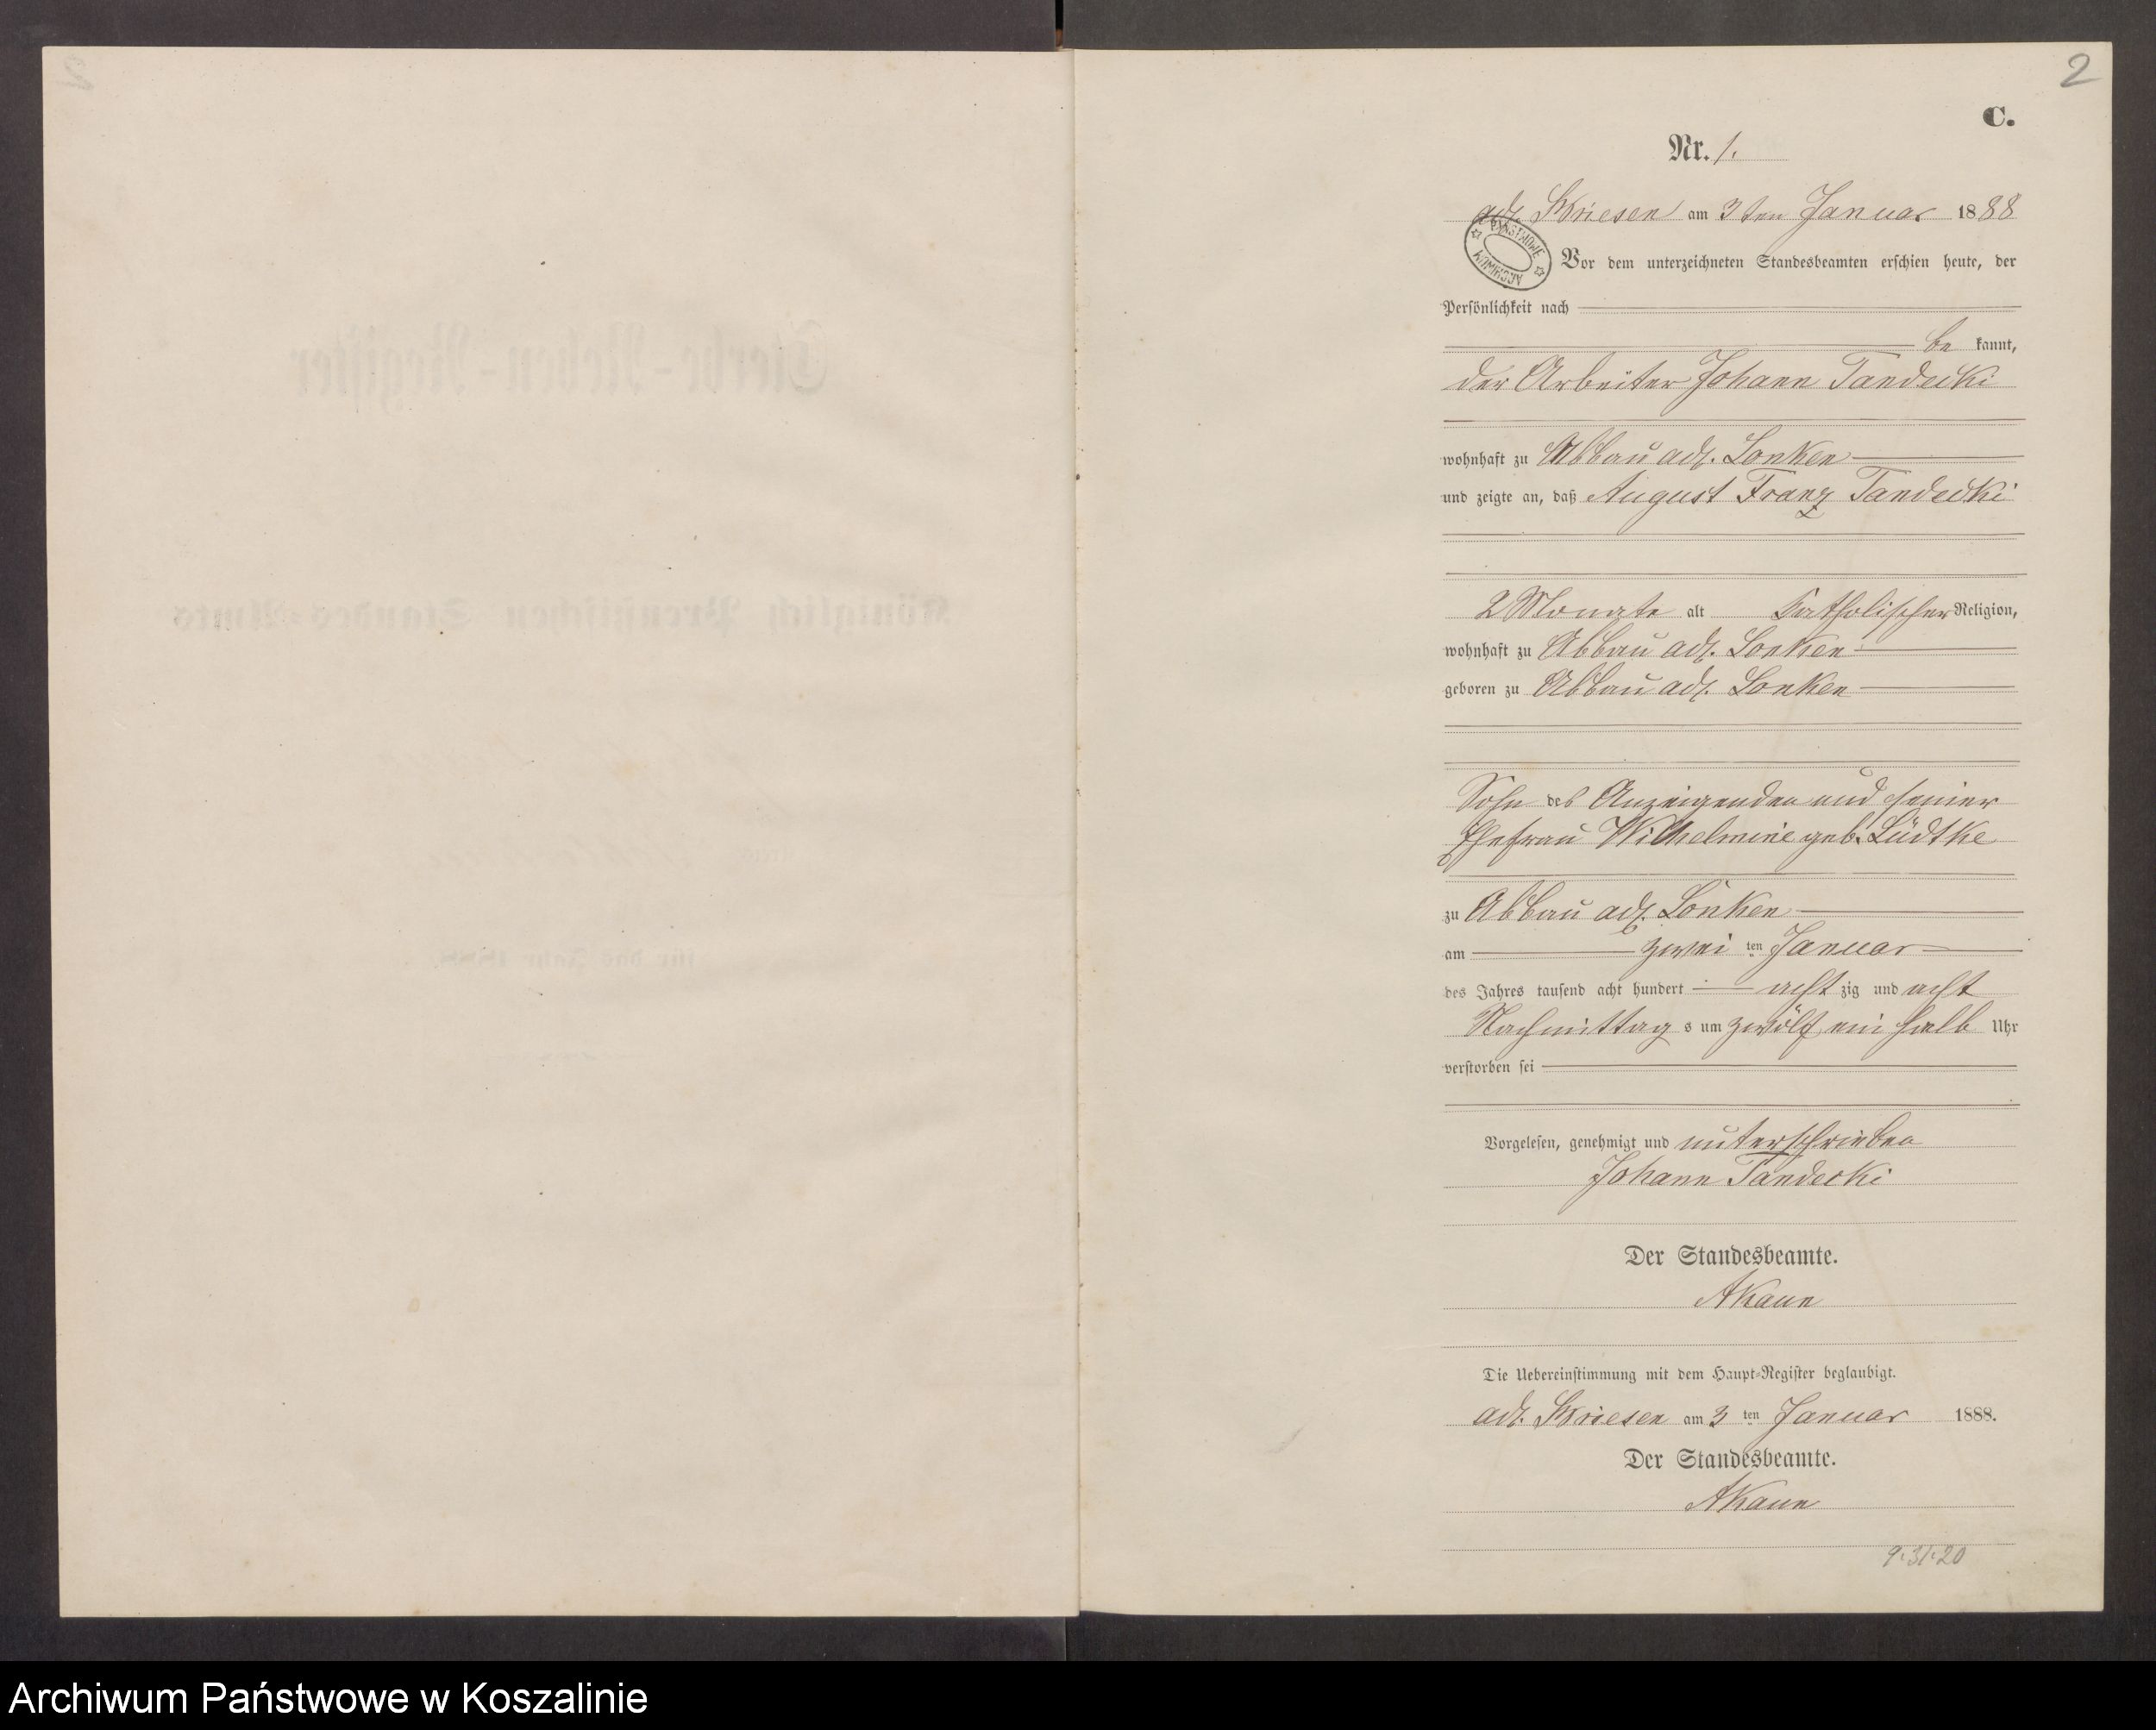 2
C.
Nr. 1.
adl. Briesen am 3ten Januar 1888
ARCHIWUM PAŃSTWOWE
Vor dem unterzeichneten Standesbeamten erschien heute, der
Persönlichkeit nach
be kannt,
der Arbeiter Johann Tandecki
wohnhaft zu Abbau adl. Lonken
und zeigte an, daß August Franz Tandecki
2 Monate alt katholischer Religion,
wohnhaft zu Abbau adl. Lonken
geboren zu Abbau adl. Lonken
Sohn des Anzeigenden und seiner
Ehefrau Wilhelmine geb. Lüdtke
zu Abbau adl. Lonken
am zwei ten Januar
des Jahres tausend acht hundert acht zig und acht
Nachmittag s um zwölf ein halb Uhr
verstorben sei
Vorgelesen, genehmigt und unterschrieben
Johann Tandecki
Der Standesbeamte.
Die Uebereinstimmung mit dem Haupt-Register beglaubigt.
adl. Briesen am 3 ten Januar 1888.
Der Standesbeamte.
9·31·20
Sterbe-Neben-Register
Königlich Preußischen Standes-Amts
für das Jahr 1888.
Archiwum Państwowe w Koszalinie